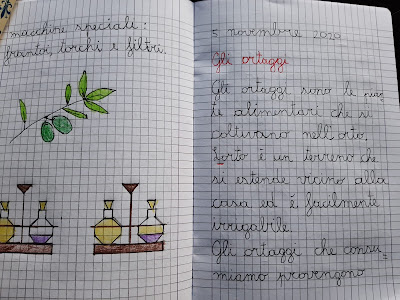 macchine speciali:
frantoi, torchi e filtri.
5 novembre 2020
Gli ortaggi
Gli ortaggi sono le pian
te alimentari che si
coltivano nell'orto.
L'orto è un terreno che
si estende vicino alla
casa ed è facilmente
irrigabile.
Gli ortaggi che consu-
miamo provengono